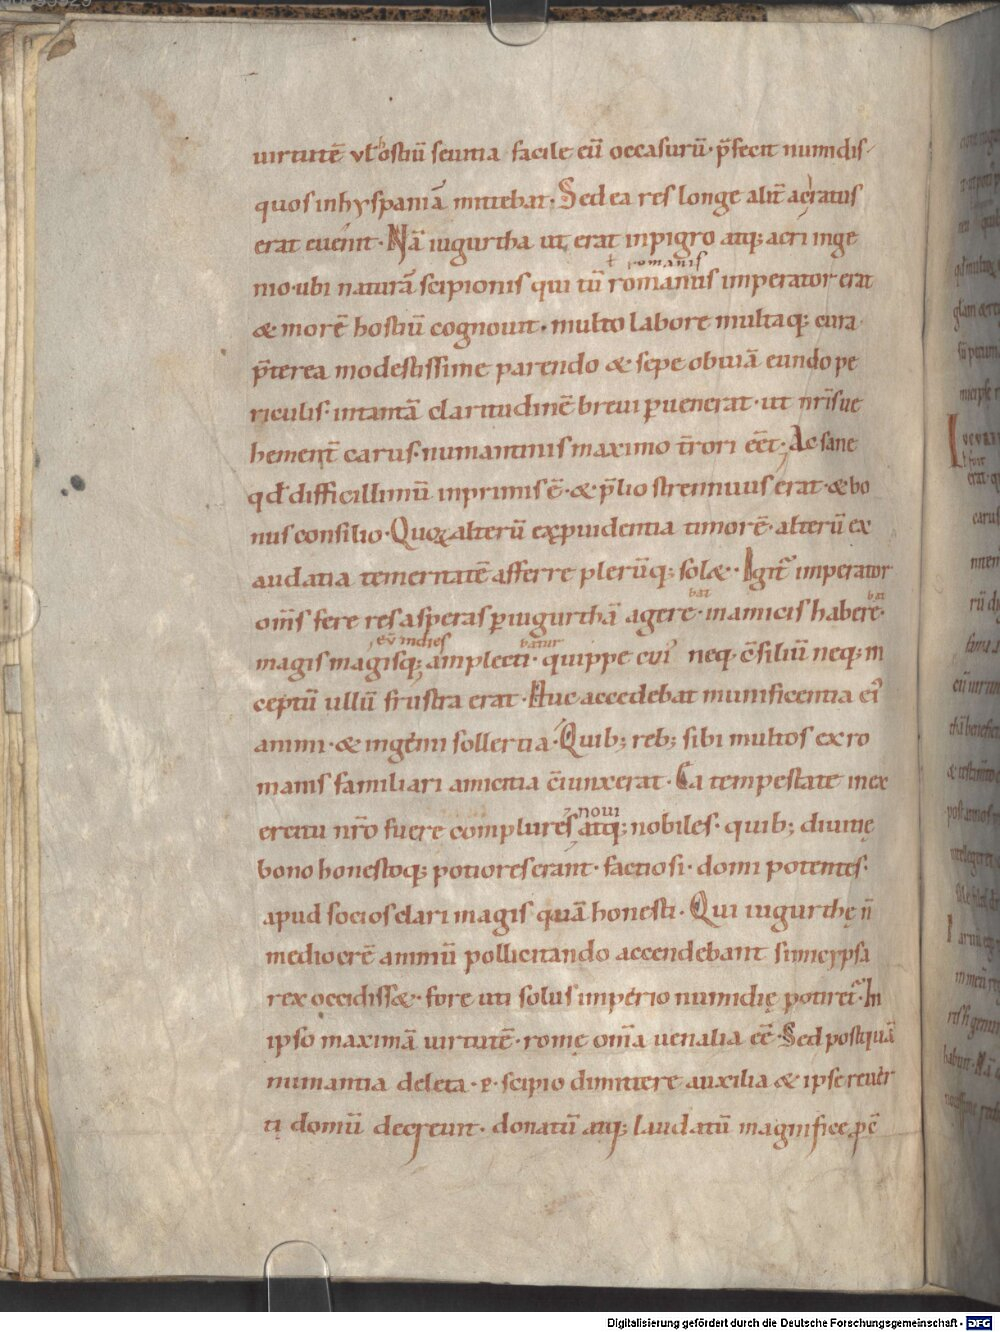 uirtutē vl hostiū seuitia facile eū occasurū· p̄fecit numidis
quos in hyspaniā mittebat· Sed ea res longe alit̄ ac ratus
erat euenit· Nā iugurtha ut erat inpigro atq; acri inge
ꝉ romanis
nio· ubi naturā scipionis qui tū romanus imperator erat
& morē hostiū cognouit· multo labore multaq; cura·
p̄terea modestissime parendo & sepe obuiā eundo pe
riculis· in tantā claritudinē breui ꝑuenerat· ut nr̄is ue
hement̄ carus· numantinis maximo t̄rori eēt; Ac sane
qd̄ difficillimū inprimis ē· & p̄lio strennuus erat· & bo
nus consilio· Quoꝝ alterū ex ꝓuidentia timorē· alterū ex
audatia temeritatē afferre plerūq; sol&· Igit᷑ imperator
bat bat
om̄s fere res asperas ꝑ iugurthā agere· in amicis habere·
eū indies batur
magis magisq; amplecti· quippe cui neq· c̄siliū neq; in
ceptū ullū frustra erat· Huc accedebat munificentia ei᷒
animi· & ingenii sollertia· Quib; reb; sibi multos ex ro
manis familiari amicitia c̄iunxerat· Ea tempestate in ex
noui
ercitu nr̄o fuere complures atq; nobiles· quib; diuitię
bono honestoq; potiores erant· factiosi· domi potentes·
apud socios clari magis quā honesti· Qui iugurthę n̄
mediocrē animū pollicitando accendebant si micypsa
rex occidiss&· fore uti solus imperio numidię potiret᷑· In
ipso maximā uirtutē· romę om̄a uenalia eē· Sed postquā
numantia deleta· p· scipio dimittere auxilia & ipse reuer
ti domū decreuit· donatū atq; laudatū magnifice p̱ c̄
Digitalisierung gefördert durch die Deutsche Forschungsgemeinschaft - DFG